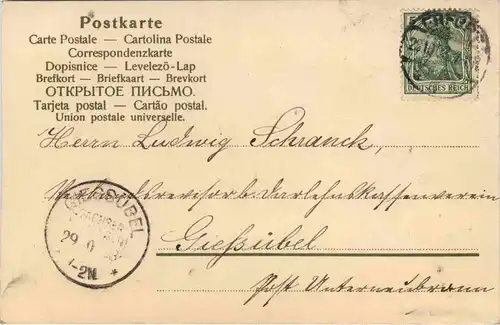 Postkarte
Carte Postale — Cartolina Postale
Correspondenzkarte
Dopisnice — Levelezō-Lap
Brefkort — Briefkaart — Brevkort
ОТКРЫТОЕ ПИСЬМО.
Tarjeta postal — Cartão postal.
Union postale universelle.
5
DEUTSCHES REICH
Herrn Ludwig Schranck,
Darlehnskassenverein
Gießübel
Post Unterneubrunn
GIESSÜBEL
29
1-2N. *